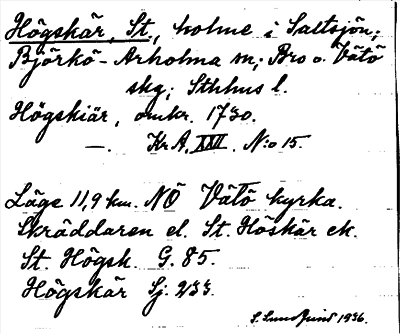 Högskär, St, holme i Saltsjön;
Björkö-Arholma m; Bro o. Vätö
skg; Sthlms l.
Högskiär, omkr. 1730.
—. Kr A, XXVI. N:o 15.
Läge 11,9 km. NÖ Vätö kyrka.
Skräddaren el. St. Höskär ek.
St. Högsk. G. 85.
Högskär Sj. 233.
S. Lundqvist 1936.